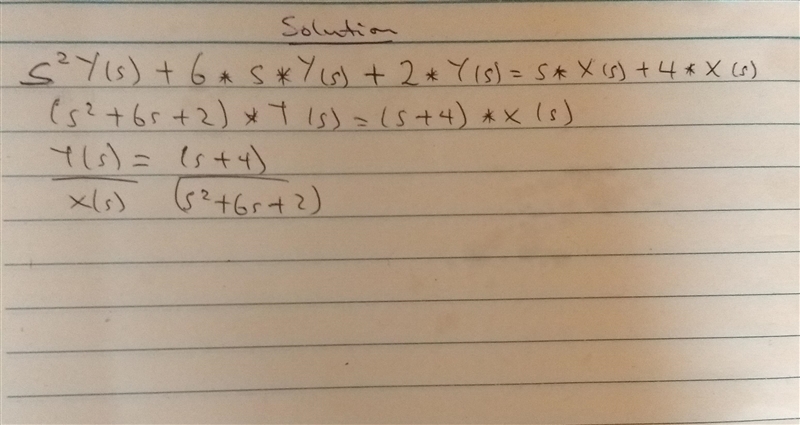 Solution
s²Y(s) + 6 * s * Y(s) + 2 * Y(s) = s * X(s) + 4 * X(s)
(s² + 6s + 2) * Y(s) = (s + 4) * X(s)
Y(s) = (s + 4)
X(s) (s² + 6s + 2)